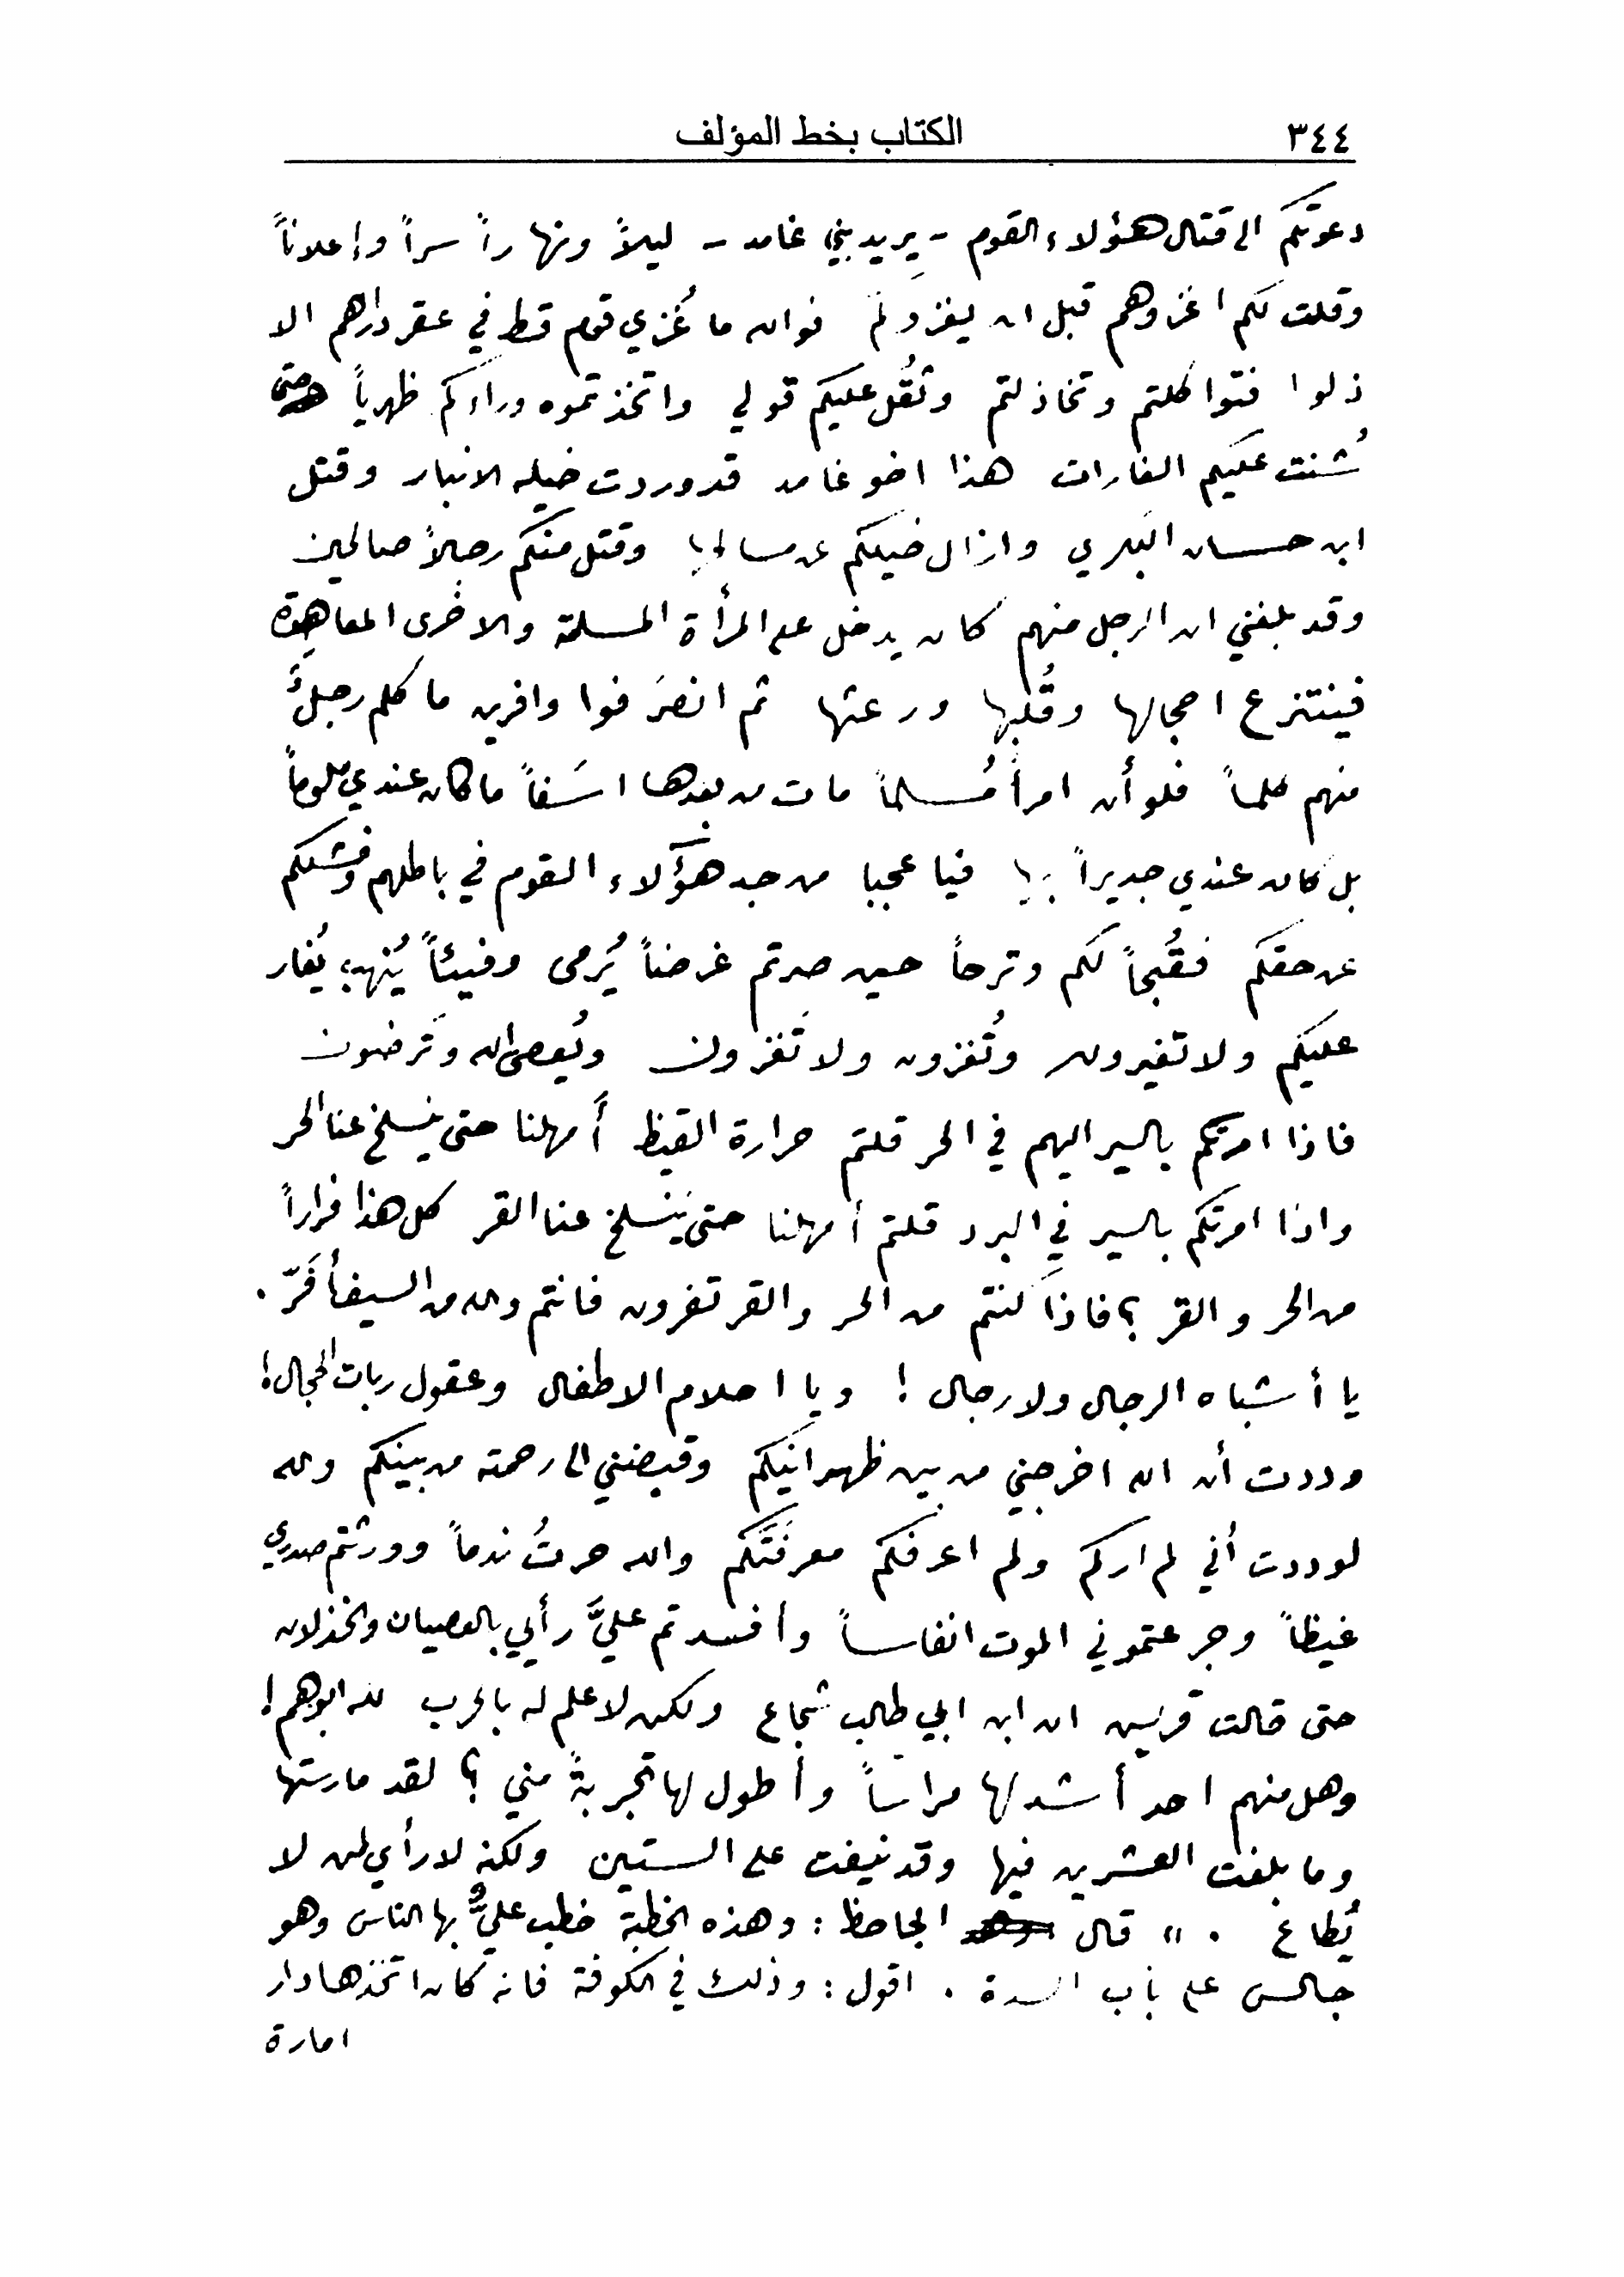 ٣٤٤ الكتاب بخط المؤلف
دعوتكم الى قتال هؤلاء القوم - يريد بني غامد - ليلاً ونهاراً سراً وإعلاناً
وقلت لكم اغزوهم قبل ان يغزوكم فوالله ما غُزي قوم قط في عقر دارهم الا
ذلوا فتواكلتم وتخاذلتم وثقُل عليكم قولي واتخذتموه وراءكم ظهرياً حتى
شُنت عليكم الغارات هذا اخو غامد قد وردت خيله الانبار وقتل
ابن حسان البكري وازال خيلكم عن مسالحها وقتل منكم رجالاً صالحين
وقد بلغني ان الرجل منهم كان يدخل على المرأة المسلمة والاخرى المعاهِدة
فينتزع احجالها وقُلبها ورعثها ثم انصرَفوا وافرين ما كلم رجلٌ
منهم كلماً فلو أن امرأً مُسلماً مات من بعدها اسَفاً ما كان عندي ملوماً
بل كان عندي جديراً بها فيا عجبا من جد هؤلاء القوم في باطلهم وفشلكم
عن حقكم فقُبحاً لكم وترحاً حين صرتم غرضاً يُرمى وفيئاً يُنهب يُغار
عليكم ولا تغيرون وتُغزون ولا تَغزون ويُعصى الله وتَرضون
فاذا امرتكم بالسير اليهم في الحر قلتم حرارة القيظ أمهلنا حتى ينسلخ عنا الحر
واذا امرتكم بالسير في البرد قلتم أمهلنا حتى يَنسلخ عنا القر كل هذا فراراً
من الحر والقر ؟ فاذا كنتم من الحر والقر تفرون فانتم والله من السيف أفَرّ .
يا أشباه الرجال ولا رجال ! ويا احلام الاطفال وعقول ربات الحجال !
وددت أن الله اخرجني من بين ظهرانَيكم وقبضني الى رحمته من بينكم والله
لوددت أني لم اركم ولم اعرفكم معرفَتَكم والله حرتُ ندماً وورثتم صدري
غيظاً وجرعتموني الموت انفاساً وأفسدتم عليَّ رأيي بالعصيان والخذلان
حتى قالت قريش ان ابن ابي طالب شجاع ولكن لا علم له بالحرب لله ابوهم !
وهل منهم احد أشد لها مراساً وأطول لها تجربةً مني ؟ لقد مارستها
وما بلغت العشرين فيها وقد نيفت على الستين ولكنه لا رأي لمن لا
يُطاع . » قال الجاحظ : وهذه الخطبة خطب عليٌّ بها الناس وهو
جالس على باب السدة . اقول : وذلك في الكوفة فانه كان اتخذها دار
امارة